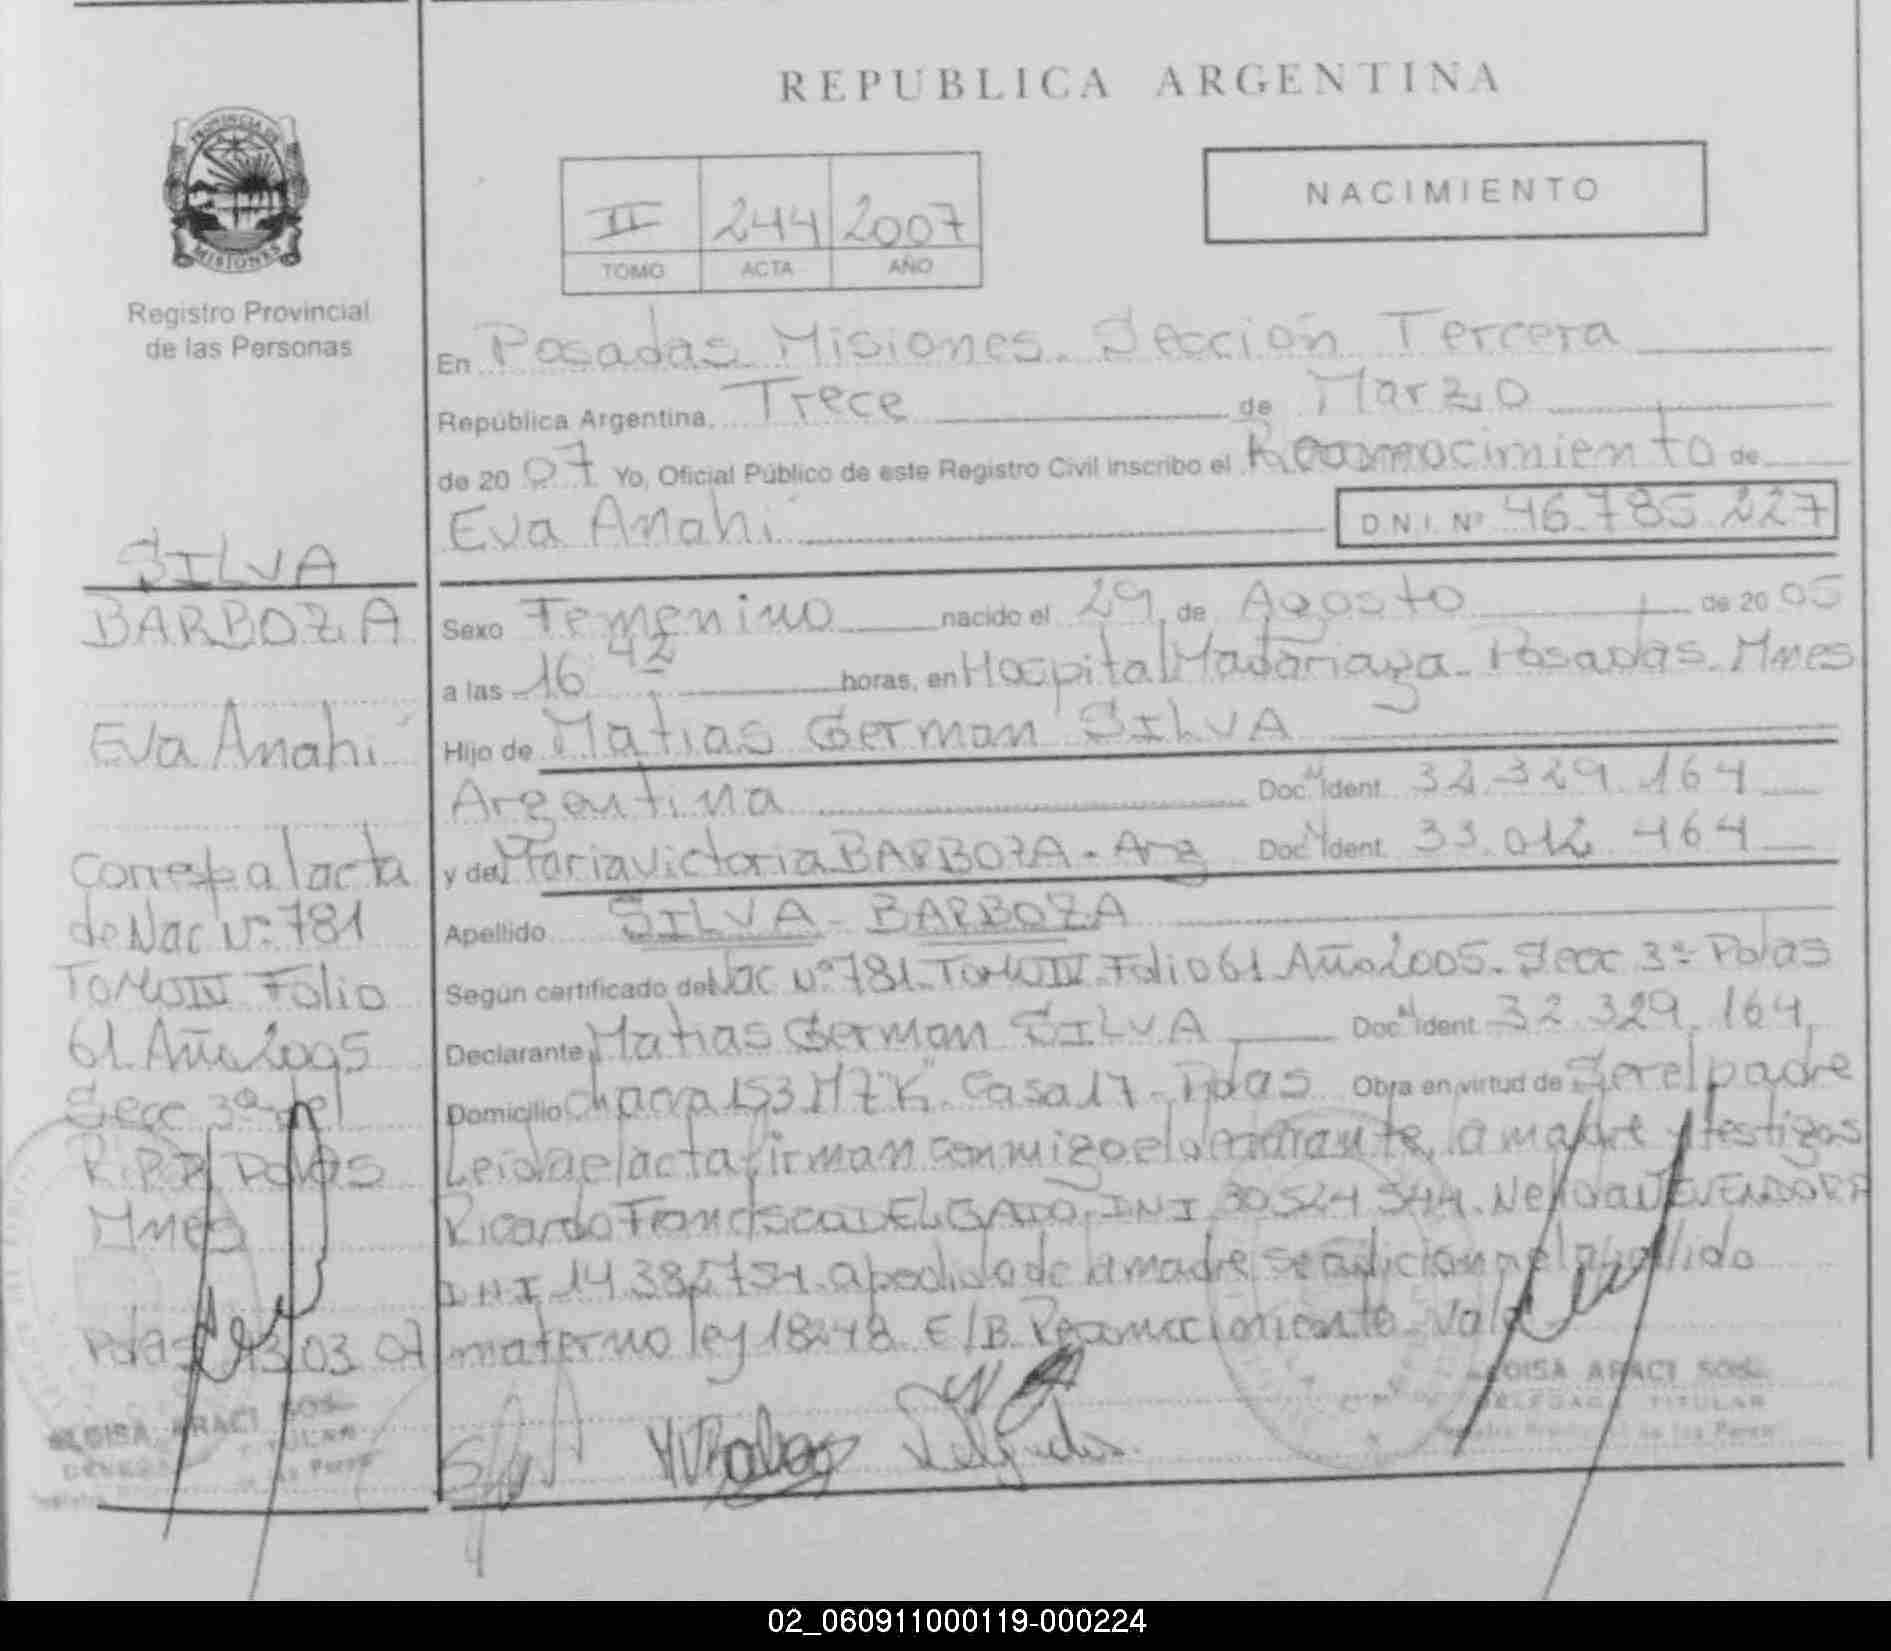 REPUBLICA ARGENTINA
PROVINCIA DE
MISIONES
Registro Provincial
de las Personas
II 244 2007
TOMO ACTA AÑO
NACIMIENTO
En Posadas Misiones. Sección Tercera
República Argentina, Trece de Marzo
de 20 07 Yo, Oficial Público de este Registro Civil inscribo el Reconocimiento de
Eva Anahí D.N.I. Nº 46.785.227
Sexo Femenino nacido el 29 de Agosto de 20 05
a las 16 42 horas, en Hospital Madariaga. Posadas. Mnes
Hijo de Matias German SILVA
Argentina Doc. Ident. 32.329.164
y de Maria Victoria BARBOZA - Arg Doc. Ident. 33.012.464
Apellido SILVA - BARBOZA
Según certificado de Nac Nº 781. Tomo IV. Folio 61 Año 2005. Secc 3ª Pdas
Declarante Matias German SILVA Doc. Ident. 32.329.164
Domicilio chacra 153 MZ "K" Casa 17 - Pdas Obra en virtud de Ser el padre
Leida el acta firman conmigo el declarante, la madre y testigos
Ricardo Francisco DELGADO, DNI 30524544.
DNI a pedido de la madre se adiciona el apellido
materno ley 18248. E/B. Reconocimiento. Vale
SILVA
BARBOZA
Eva Anahí
Corresp al acta
de Nac Nº 781
Tomo IV Folio
61 Año 2005
Secc 3ª del
R.P.P. Pdas
Mnes
Pdas 13.03.07
ARACI
TITULAR
ARACI
TITULAR
02_060911000119-000224